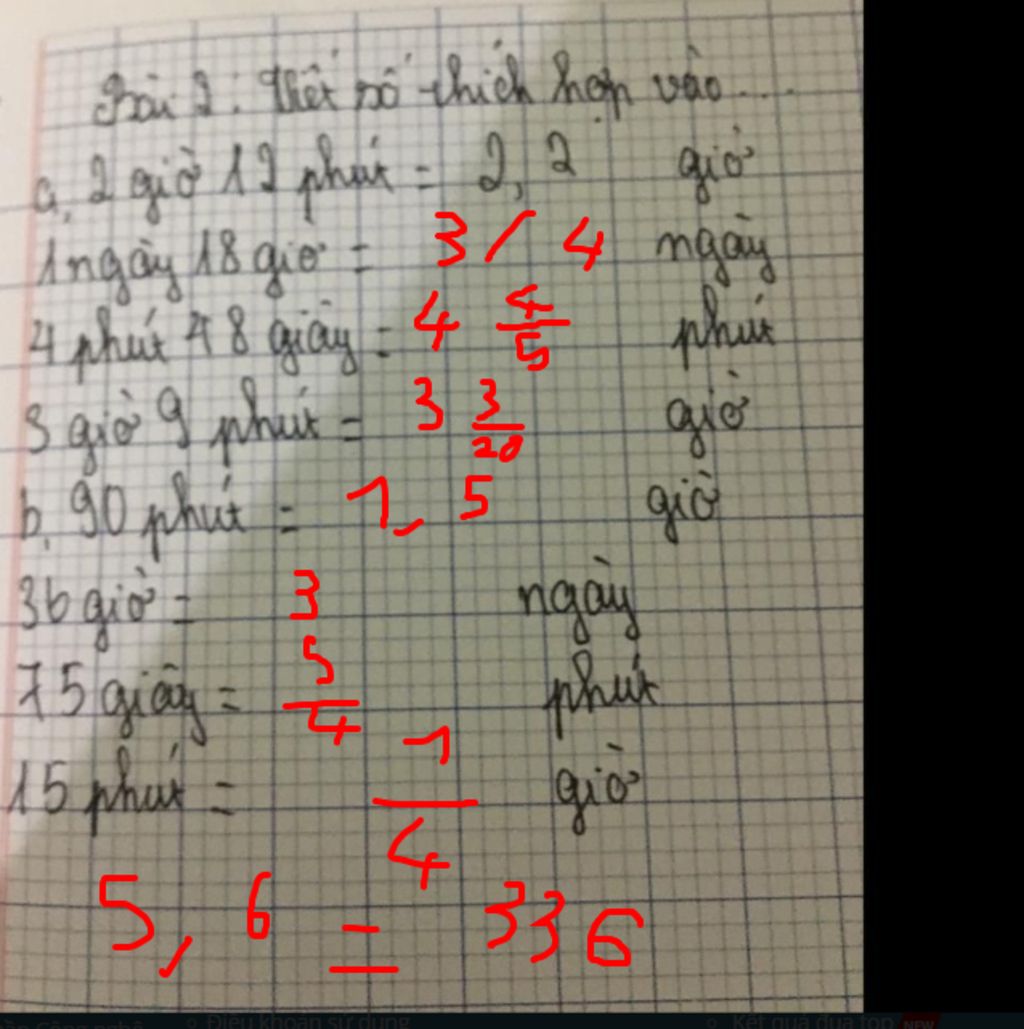 Bài 2: Viết số thích hợp vào....
a, 2 giờ 12 phút = 2,2 giờ
1 ngày 18 giờ = 3/4 ngày
4 phút 48 giây = 4 4/5 phút
3 giờ 9 phút = 3 3/20 giờ
b, 90 phút = 1,5 giờ
36 giờ = 3 ngày
75 giây = 5/4 phút
15 phút = 1/4 giờ
5,6 = 336
Điều khoản sử dụng
Kết quả đua top NEW